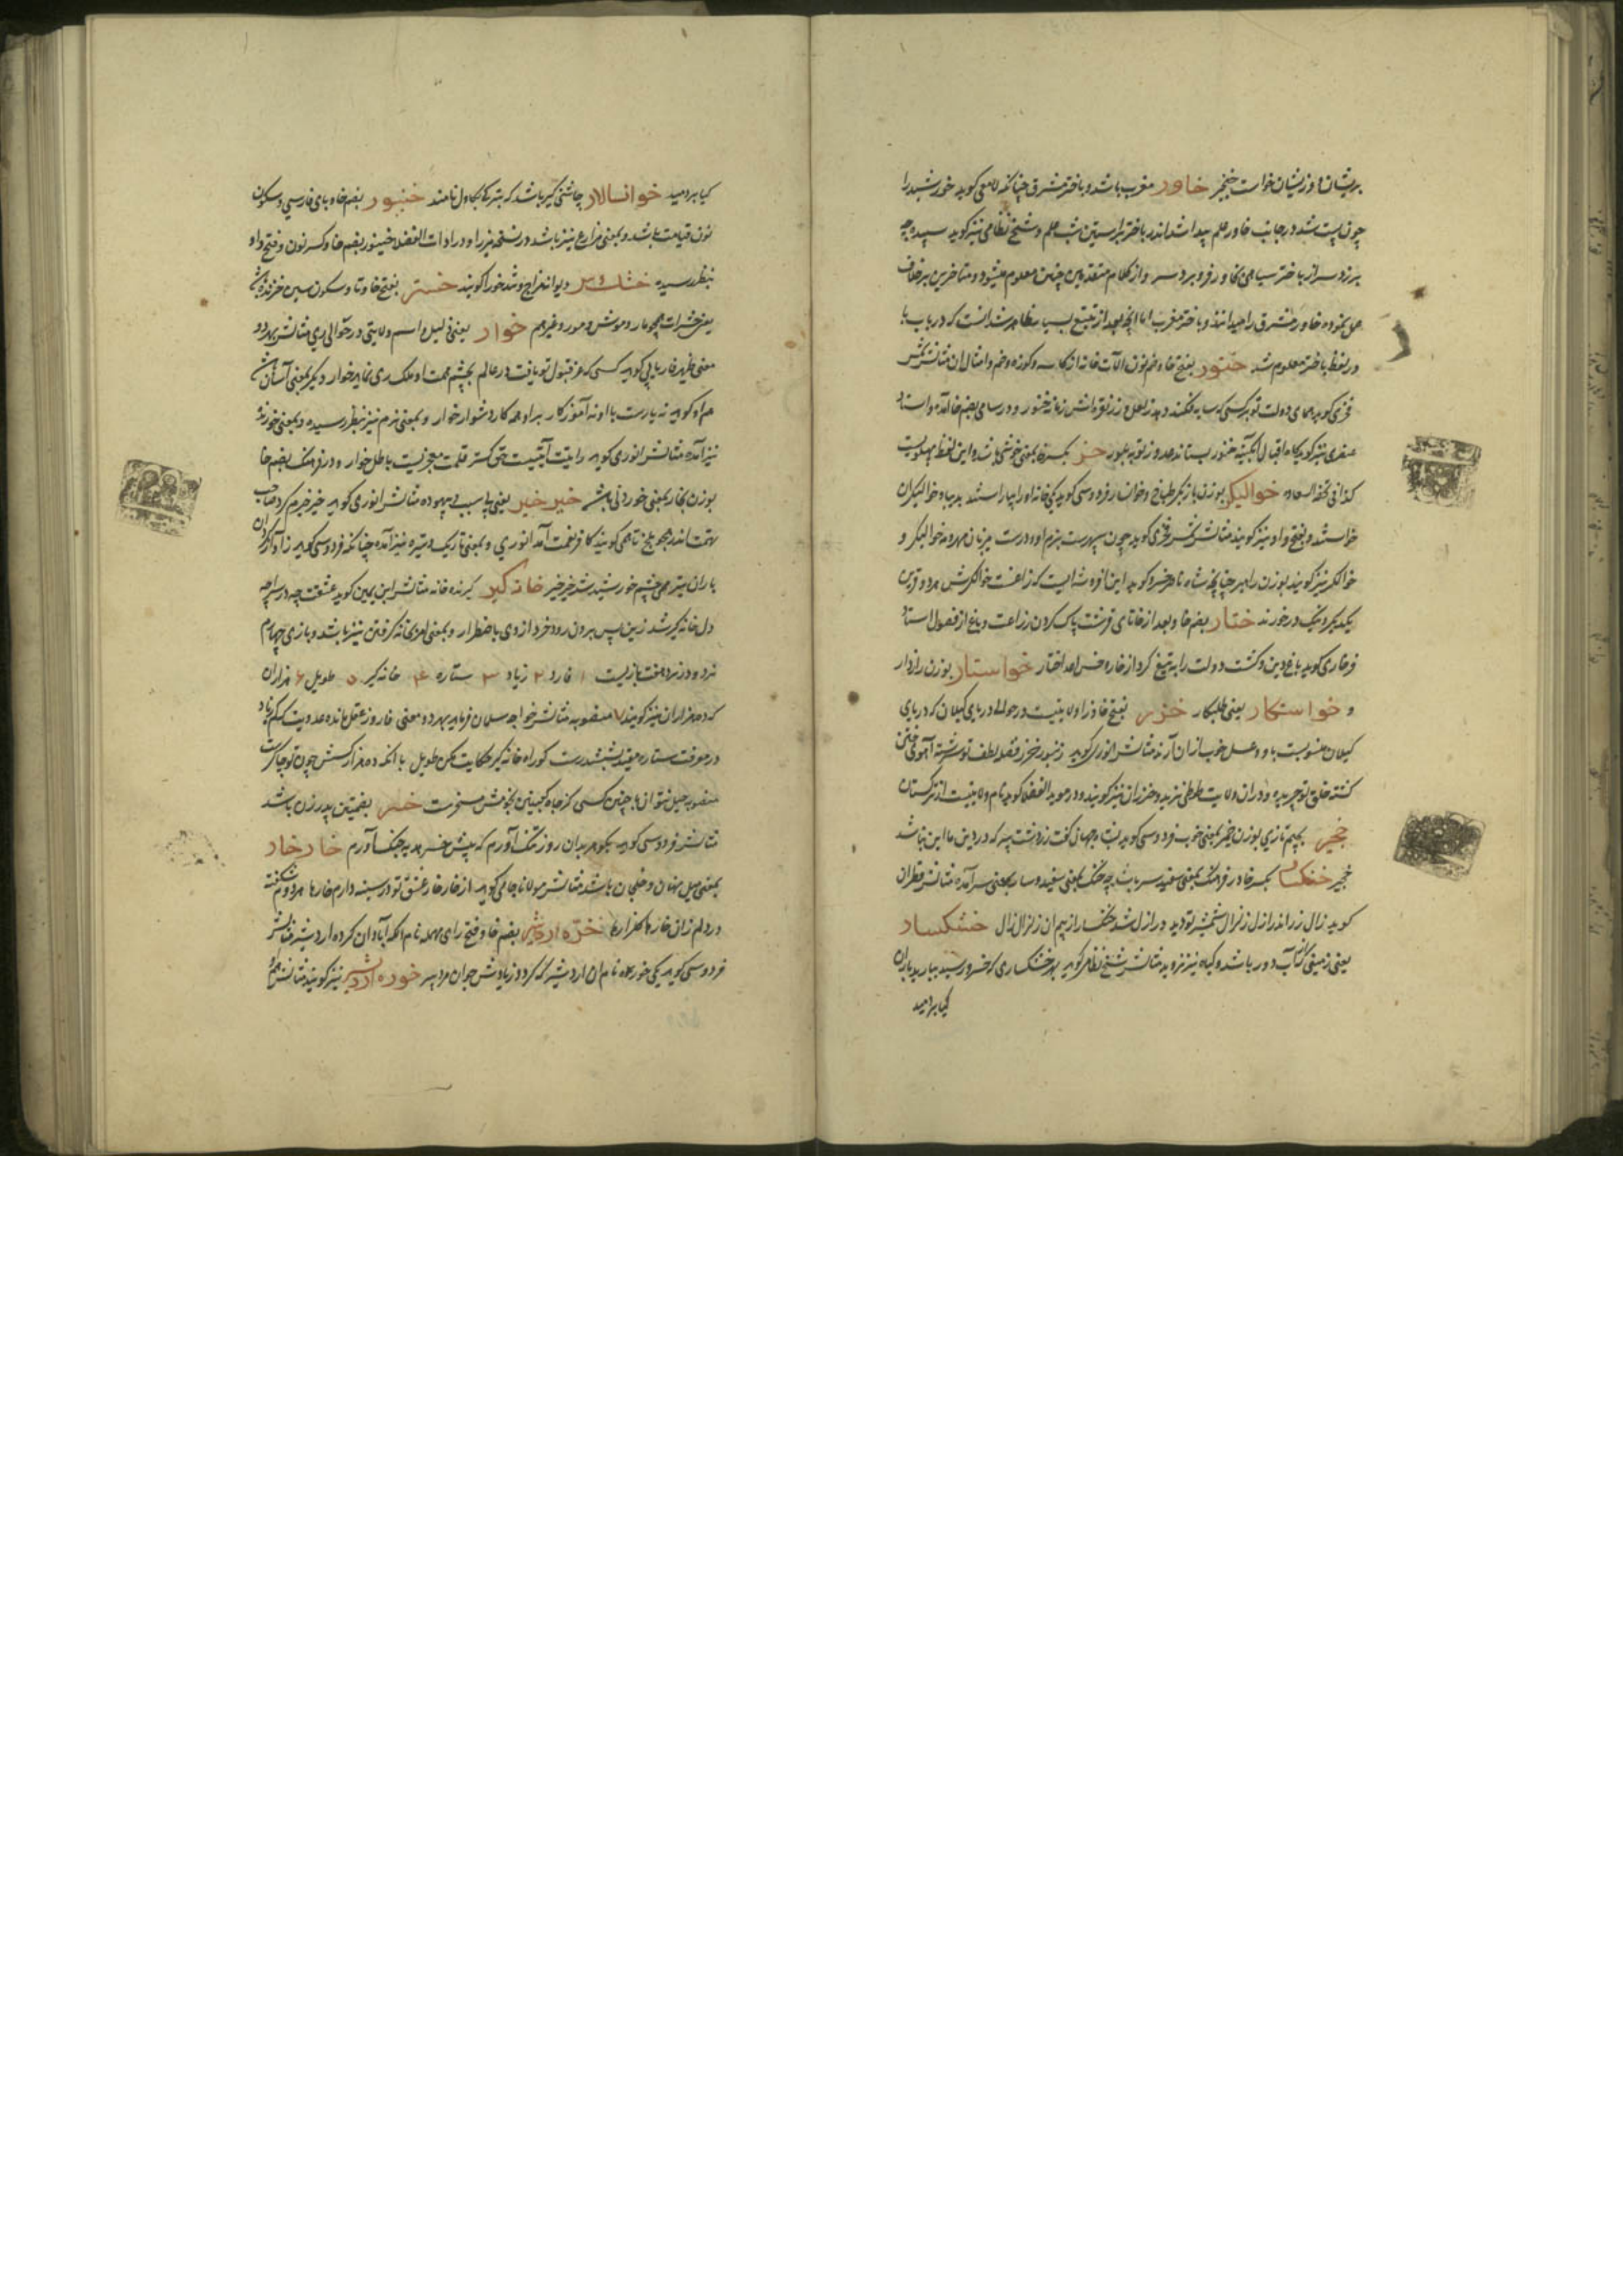 پریشان را و زیشان خواست خنجر خاور مغرب باشد و باختر مشرق چنانکه لامعی کوید خورشید را
چون پست شد در جانب خاور علم پیدا شد اندر باختر بر استین شب علم و شیخ نظامی نیز کوید سپیده چو
برزد سر از باختر سیاهی بخاور فرو برد سر و از کلام متقدمین چنین معلوم میشود و متاخرین برخلاف
حل نموده خاور مشرق را میدانند و باختر مغرب اما انچه بعد از تتبع بسیار ظاهر شد انست که در باب با
در لفظ باختر معلوم شد خنور بفتح خا و ضم نون الات خانه از کاسه و کوزه و خم و امثال ان مثالش شمس
فخری کوید همای دولت تو بر کسی که سایه فکند دهد لعل و زر نقره اش زمانه خنور و در سامی بضم خا آمده و استاد
عنصری نیز کوید خنور بستاند بلور خر بکسر خا بمعنی خوشی باشد و این لفظ پهلویست
کذا فی تحفة السعاده خوالیکر بوزن بازیکر طباخ و خوانسالار فردوسی کوید یکی خانه او را بیاراستند بدیبا و خوالیکران
خواستند و بفتح واو نیز کویند مثالش شمس فخری کوید چون سپهرست بزم او و درست میزبان مهر و مه خوالیکر و
خوالکر نیز کویند بوزن رامبر چنانچه شاه ناصر خسرو کوید این افروشه ایست که زاغست خوالکرش هر دو قرین
یکدیگر و نیک در خورند ختار بضم خا و بعد از خا تای قرشت پاک کردن زراعت و باغ از فضول استاد
فرخاری کوید باغ دین و کشت دولت را به تیغ کرد از خار و خس اعدا ختار خواستار بوزن رازدار
و خواستکار یعنی طلبکار خزر بفتح خا و زا ولایتیست در حوالی دریای کیلان که دریای
کیلان منسوبست باو و عسل خوب از ان آرند مثالش انوری کوید زنبور خزر فضله لطف تو سرشته آهوی ختن
کشته خلق تو چریده و دران ولایت طوطی نزید و خزران نیز کویند و در موید الفضلا کوید نام ولایتیست از ترکستان
خجیر بجیم تازی بوزن خمیر بمعنی خوب فردوسی کوید
خجیر خنکسار بکسر خا در فرهنک بمعنی سفید سر باشد چه خنک بمعنی سفید و سار بمعنی سر آمده مثالش قطران
کوید زال زر اندر ازل زلزال شمشیر تو دید در ازل شد خنکسار از بیم ان زلزال زال خشکسار
یعنی زمینی کز آب دور باشد و کیاه نیز نروید مثالش شیخ نظامی کوید بهر خشکساری که خسرو رسید ببارید باران
کیا بردمید
کیا بردمید خوانسالار چاشنی کیر باشد که بترکی بکاول نامند خنپور بضم خا و بای فارسی و سکون
نون قیامت باشد و بمعنی مزارع نیز باشد در نسخه میرزا و در ادات الفضلا خینور بضم خا و کسر نون و فتح واو
بنظر رسیده خشک سر دیوانه مزاج و تند خو را کویند خستر بفتح خا و تا و سکون سین خزنده باشد
یعنی حشرات همچو مار و موش و مور و غیرهم خوار یعنی ذلیل و اسم ولایتی در حوالی ری مثالش بهر دو
معنی ظهیر فاریابی کوید کسی که عز قبول تو یافت در عالم بچشم همت او ملک ری نماید خوار و دیکر بمعنی آسان مثالش
هم او کوید نه یارست با او نه آموزکار بر او همه کار دشوار خوار و بمعنی نرم نیز بنظر رسیده و بمعنی خورنده
نیز آمده مثالش انوری کوید رایت آیتیست حق کستر قلمت معجزیست باطل خوار و در فرهنک بضم خا
بوزن بخار بمعنی خوردنی باشد خیر خیر یعنی بی سبب و بیهوده مثالش انوری کوید خیر خیرم کرد صاحب
تهمت اندر هجو بلخ تا همی کویند کافر نعمت آمد انوری و بمعنی تاریک و تیره نیز آمده چنانکه فردوسی کوید ز آواز کردان
باران تیر همی چشم خورشید شد خیر خیر خانه کیر کیرنده خانه مثالش ابن یمین کوید عشقت چو در سراچه
دل خانه کیر شد زین پس برون رود خرد از وی باضطرار و بمعنی امر بخانه کرفتن نیز باشد و بازی چهارم
نرد و در نرد هفت بازیست ۱ فارد ۲ زیاد ۳ ستاره ۴ خانه کیر ۵ طویل ۶ هزاران
که ده هزاران نیز کویند ۷ منصوبه مثالش خواجه سلمان فرماید بهر دو معنی فارد ز عقل مانده عدویت که کم زیاد
در معرفت ستاده مقید بششدرست کو راه خانه کیر حکایت مکن طویل با انکه ده هزار کسش چون تو چاکرست
منصوبه حیل نتوان باخت چنین کسی کز جاه کعبتین نجومش مسخرست خسر بضمتین پدر زن باشد
مثالش فردوسی کوید بکوهر بدان روز ننک آورم که پیش خسر هدیه جنک آورم خار خار
بمعنی میل پنهان و خلجان باشد مثالش مولانا جامی کوید از خار خار عشق تو در سینه دارم خارها هر دم شکفته
در دلم زان خارها کلزارها خره اردشیر بضم خا و فتح رای مهمله نام انکه آبادان کرده اردشیر مثالش
فردوسی کوید یکی خوره نام ان اردشیر که کردد ز یادش جوان مرد پیر خوره اردشیر نیز کویند مثالش هم